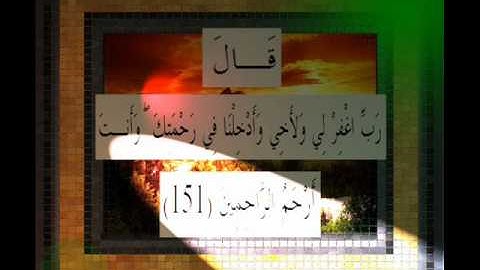 قَـــالَ
رَبِّ اغْفِرْ لِي وَلِأَخِي وَأَدْخِلْنَا فِي رَحْمَتِكَ ۖ وَأَنــتَ
أَرْحَمُ الرَّاحِمِينَ (151)